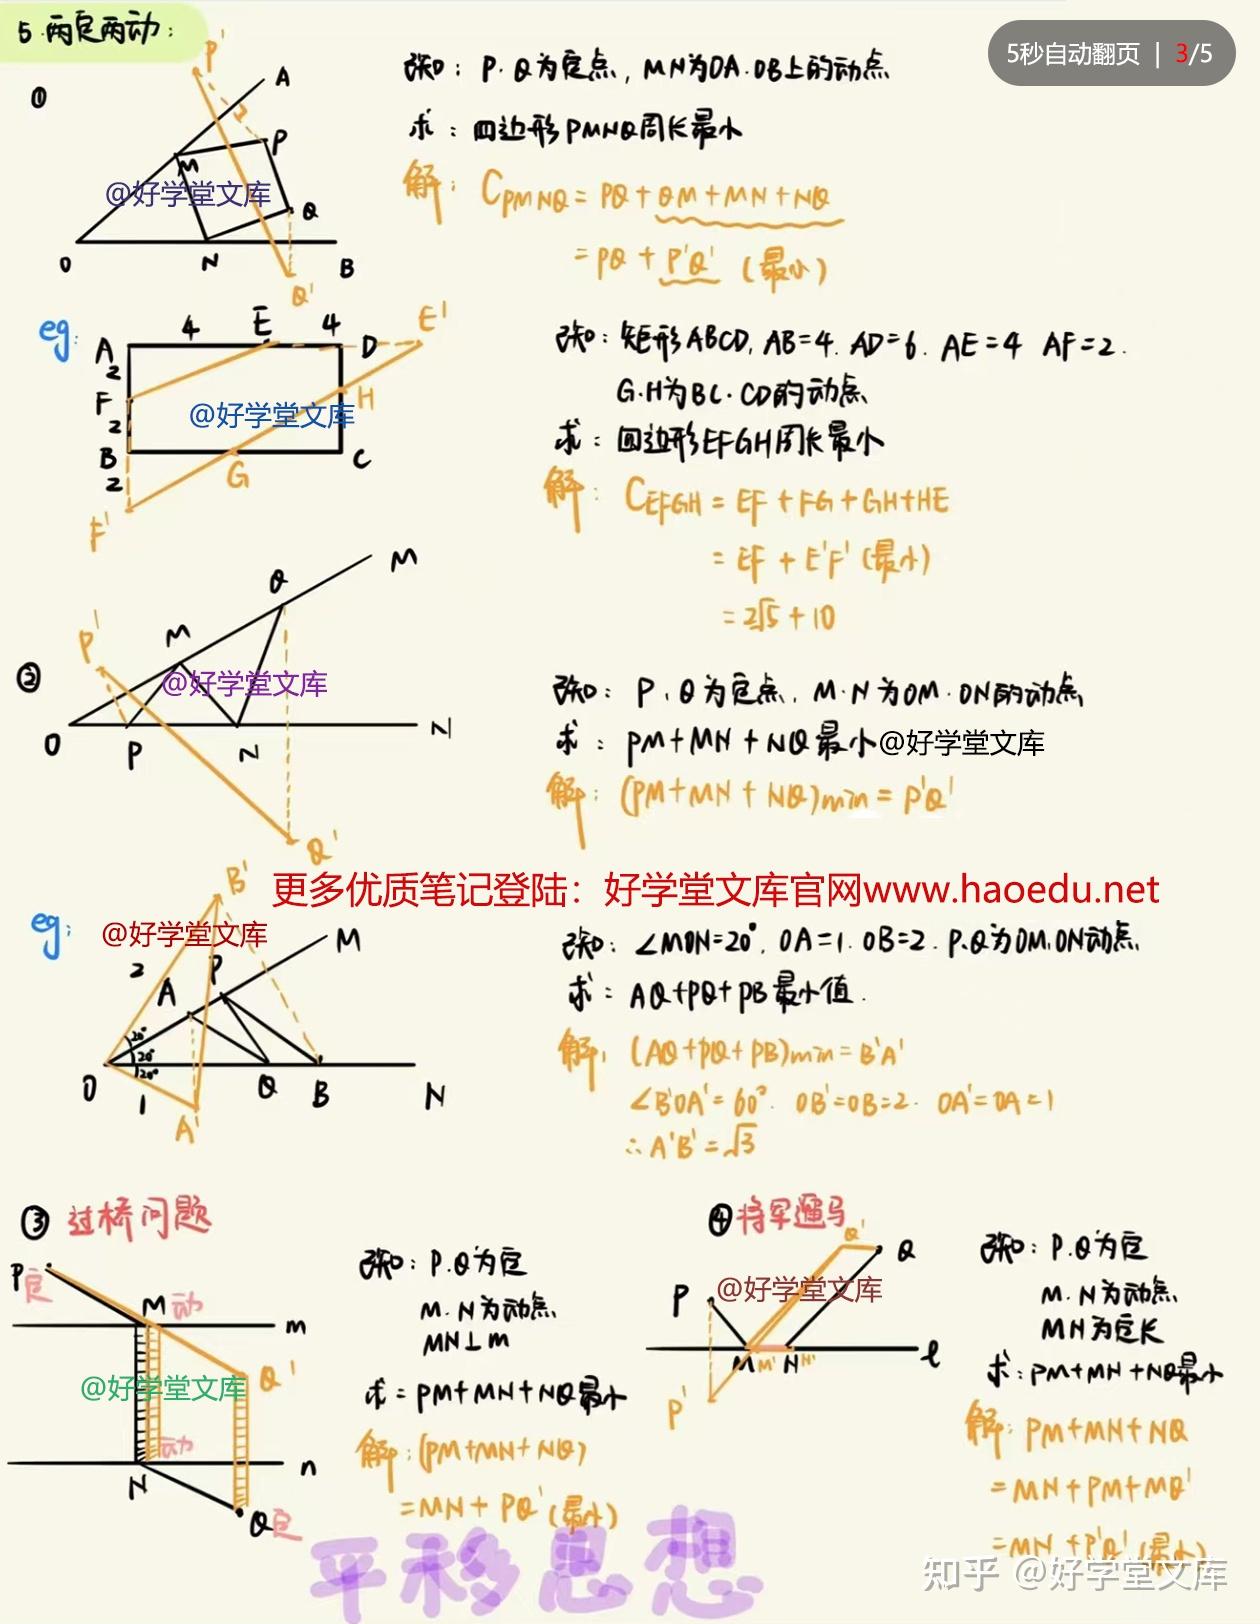 5.两定两动：
5秒自动翻页 | 3/5
①
P'
A
P
M
Q
O
N
B
Q'
@好学堂文库
已知：P.Q为定点，MN为OA.OB上的动点
求：四边形PMNQ周长最小
解：C_PMNQ = PQ + QM + MN + NQ
= PQ + P'Q'（最小）
eg:
4 E 4 E'
A D
2
F H
2 @好学堂文库
B C
2 G
F'
已知：矩形ABCD, AB=4. AD=6. AE=4 AF=2.
G.H为BC.CD的动点
求：四边形EFGH周长最小
解：C_EFGH = EF + FG + GH + HE
= EF + E'F'（最小）
= 2√5 + 10
②
M
Q
P' M
@好学堂文库
O P N N
Q'
已知：P.Q为定点，M.N为OM.ON的动点
求：PM+MN+NQ最小@好学堂文库
解：(PM+MN+NQ)min = P'Q'
更多优质笔记登陆：好学堂文库官网www.haoedu.net
eg:
B'
@好学堂文库
M
2 P
A
20°
20°
20°
O 1 Q B N
A'
已知：∠MON=20°, OA=1. OB=2. P.Q为OM.ON动点
求：AQ+PQ+PB最小值.
解：(AQ+PQ+PB)min = B'A'
∠B'OA'=60°. OB'=OB=2. OA'=OA=1
∴A'B'=√3
③ 过桥问题
P定
M动
m
Q'
@好学堂文库
动
n
N
Q定
已知：P.Q为定
M.N为动点
MN⊥m
求：PM+MN+NQ最小
解：(PM+MN+NQ)
=MN + PQ'（最小）
④将军遛马
Q' Q
@好学堂文库
P
M M' N N' l
P'
已知：P.Q为定
M.N为动点
MN为定长
求：PM+MN+NQ最小
解：PM+MN+NQ
=MN+PM+MQ'
=MN+P'Q'（最小）
平移思想
知乎 @好学堂文库